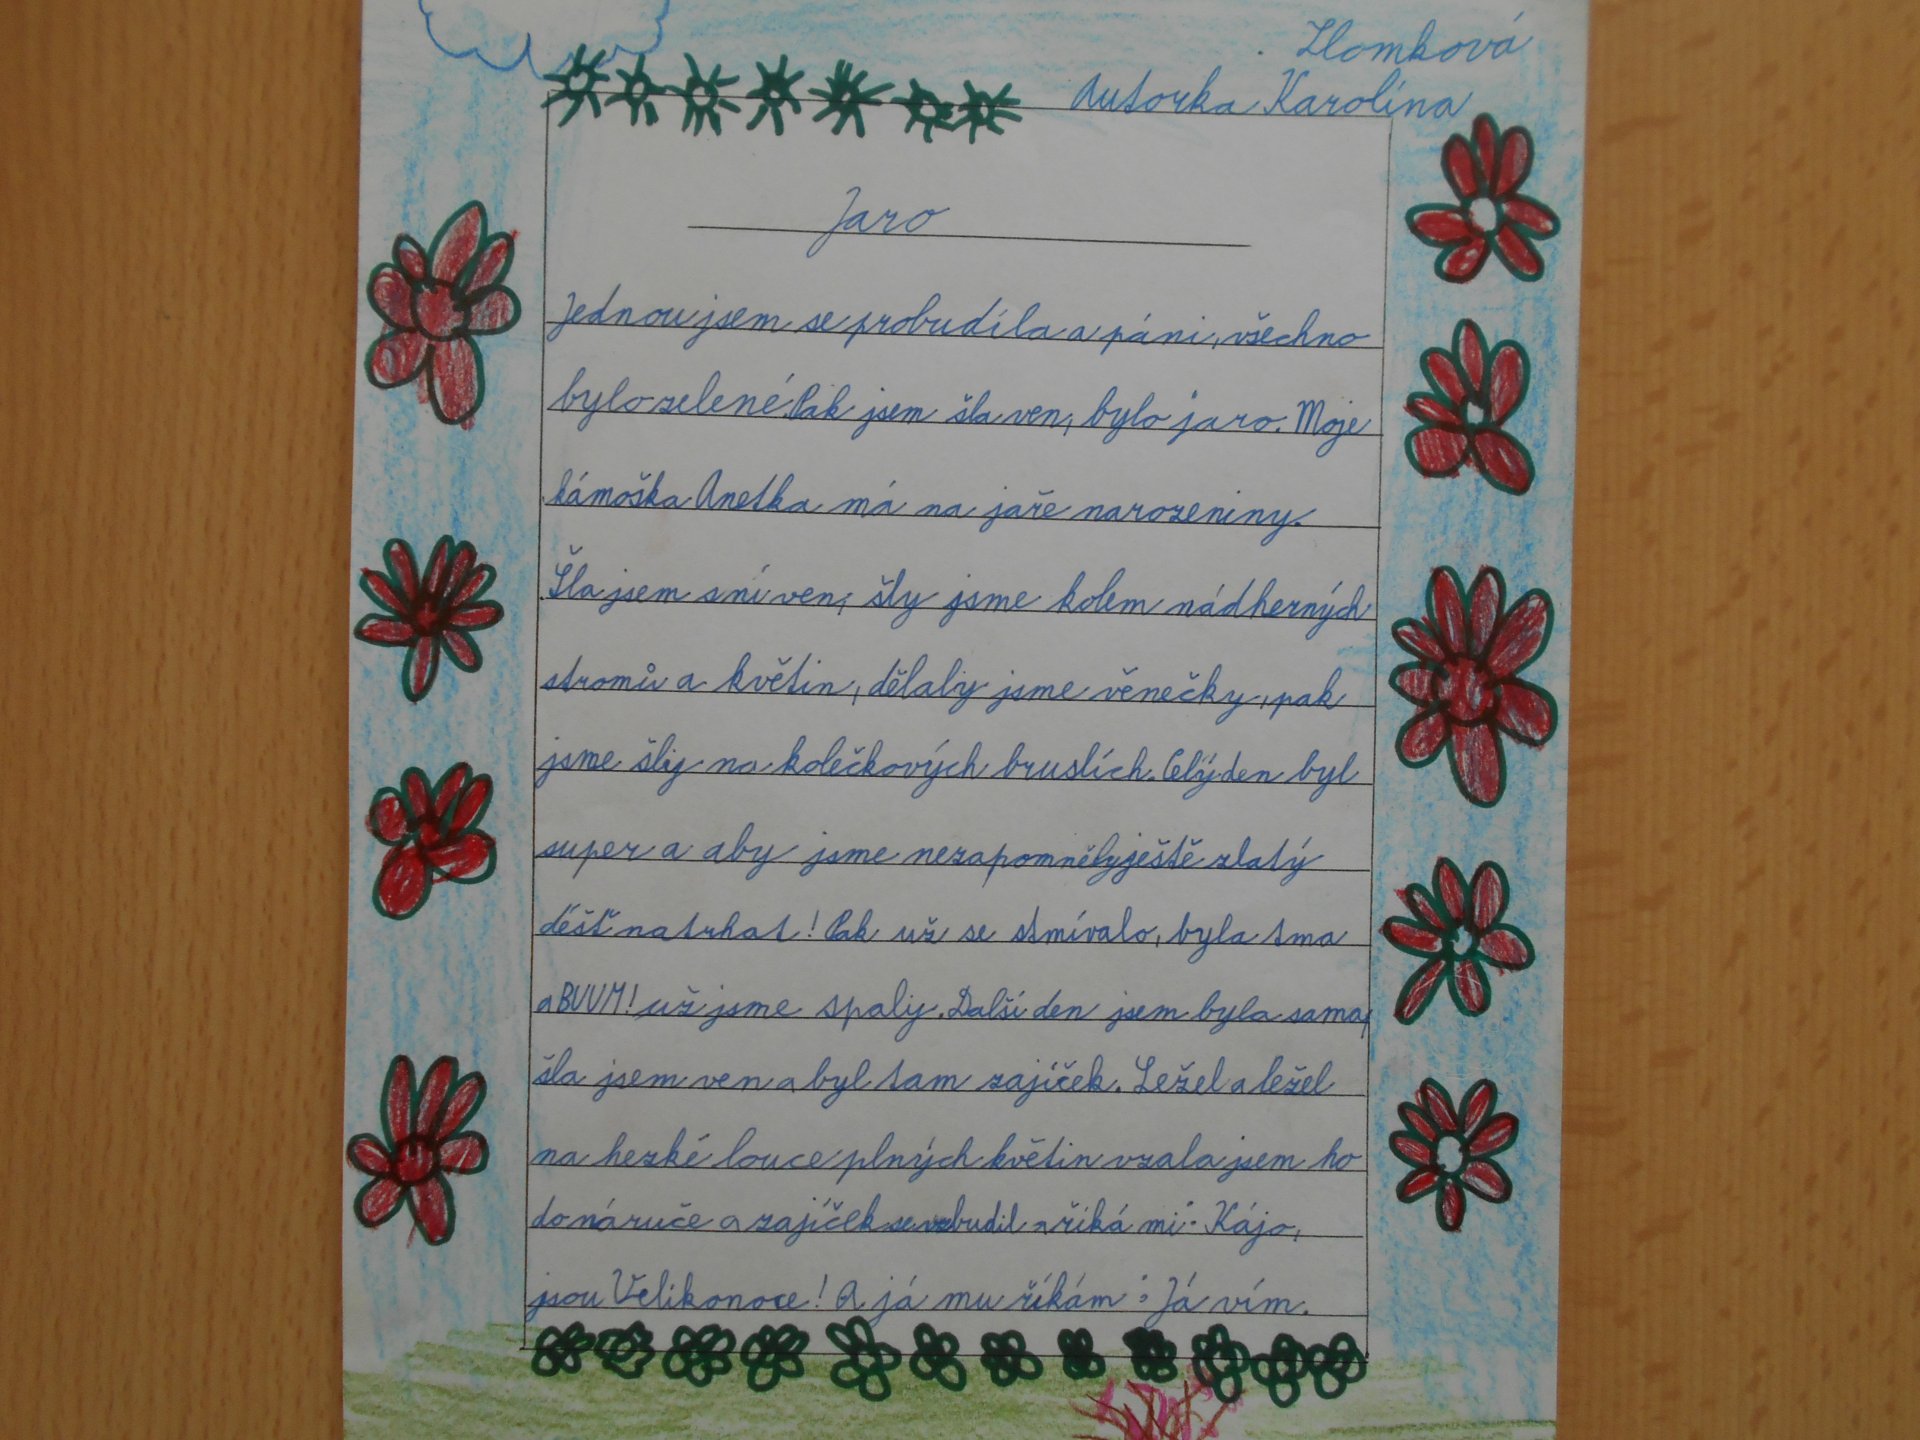 Zlomková
Autorka Karolína
Jaro
Jednou jsem se probudíla a páni, všechno
bylo zelené. Pak jsem šla ven, bylo jaro. Moje
kámoška Anetka má na jaře narozeniny.
Šla jsem s ní ven, šly jsme kolem nádherných
stromů a květin, dělaly jsme věnečky, pak
jsme šly na kolečkových bruslích. Celý den byl
super a aby jsme nezapomněly ještě zlatý
déšť natrhat! Pak už se stmívalo, byla tma
a BUUM! už jsme spaly. Další den jsem byla sama,
šla jsem ven a byl tam zajíček. Ležel a ležel
na hezké louce plných květin vzala jsem ho
do náruče a zajíček se vzbudil a říká mi: Kájo,
jsou Velikonoce! A já mu říkám: Já vím.